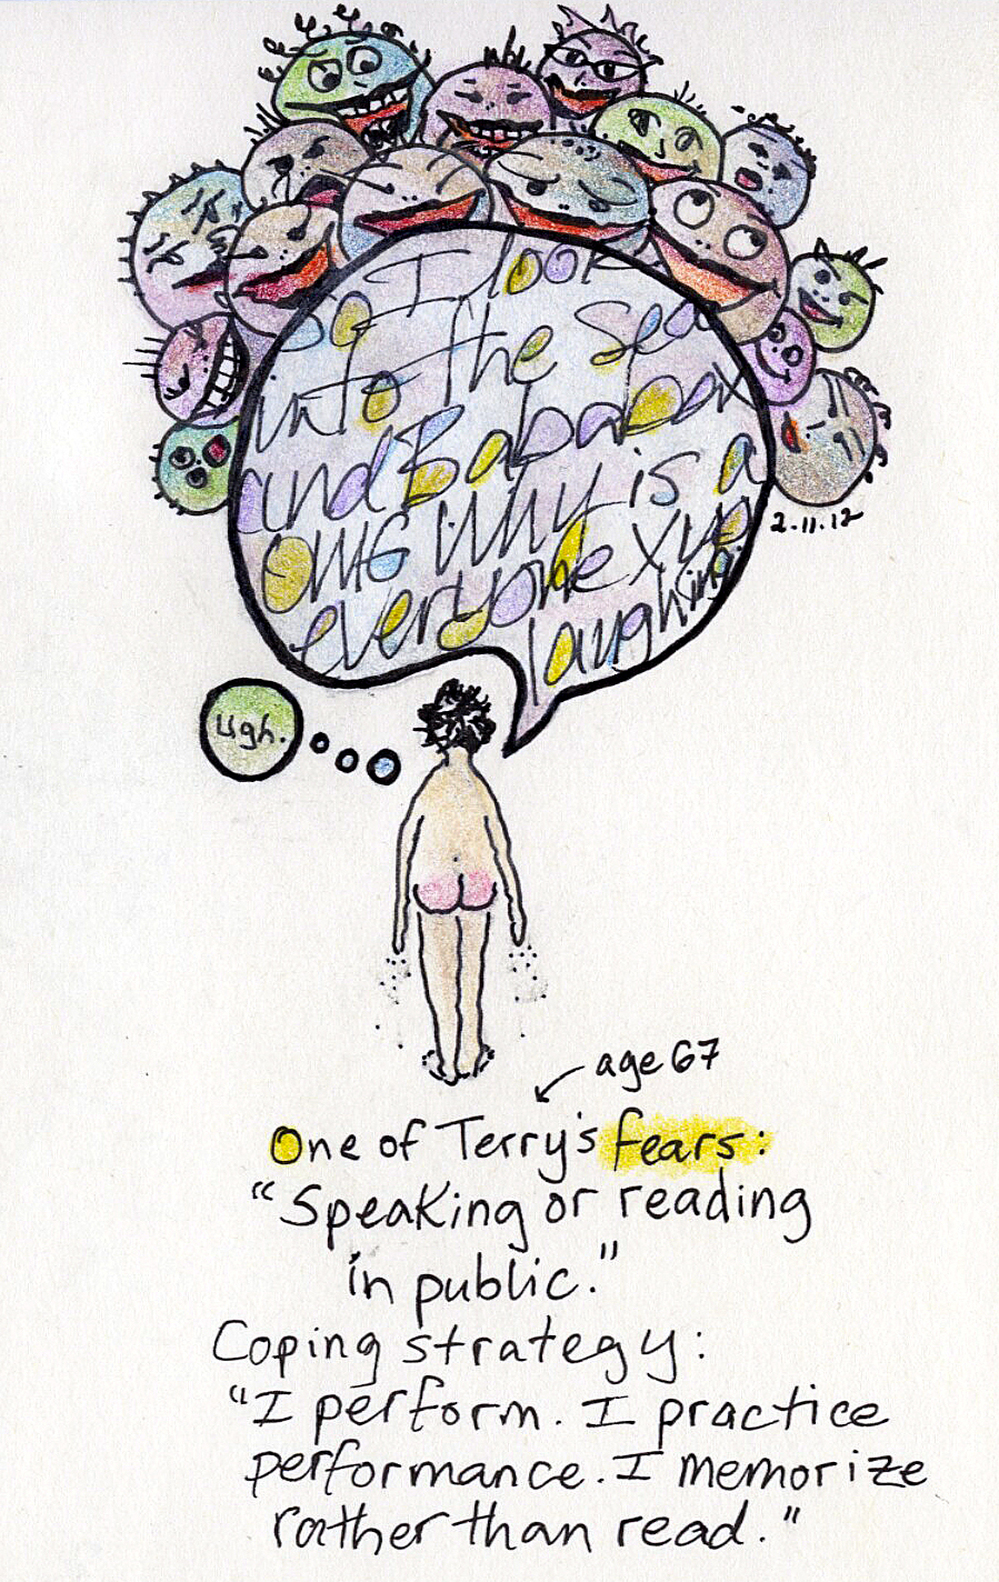 So I look
into the Sea
and Bababax
OMG Why is a
everyone xup
laughing
2.11.12
ugh.
age 67
One of Terry's fears:
"Speaking or reading
in public."
Coping strategy:
"I perform. I practice
performance. I memorize
rather than read."